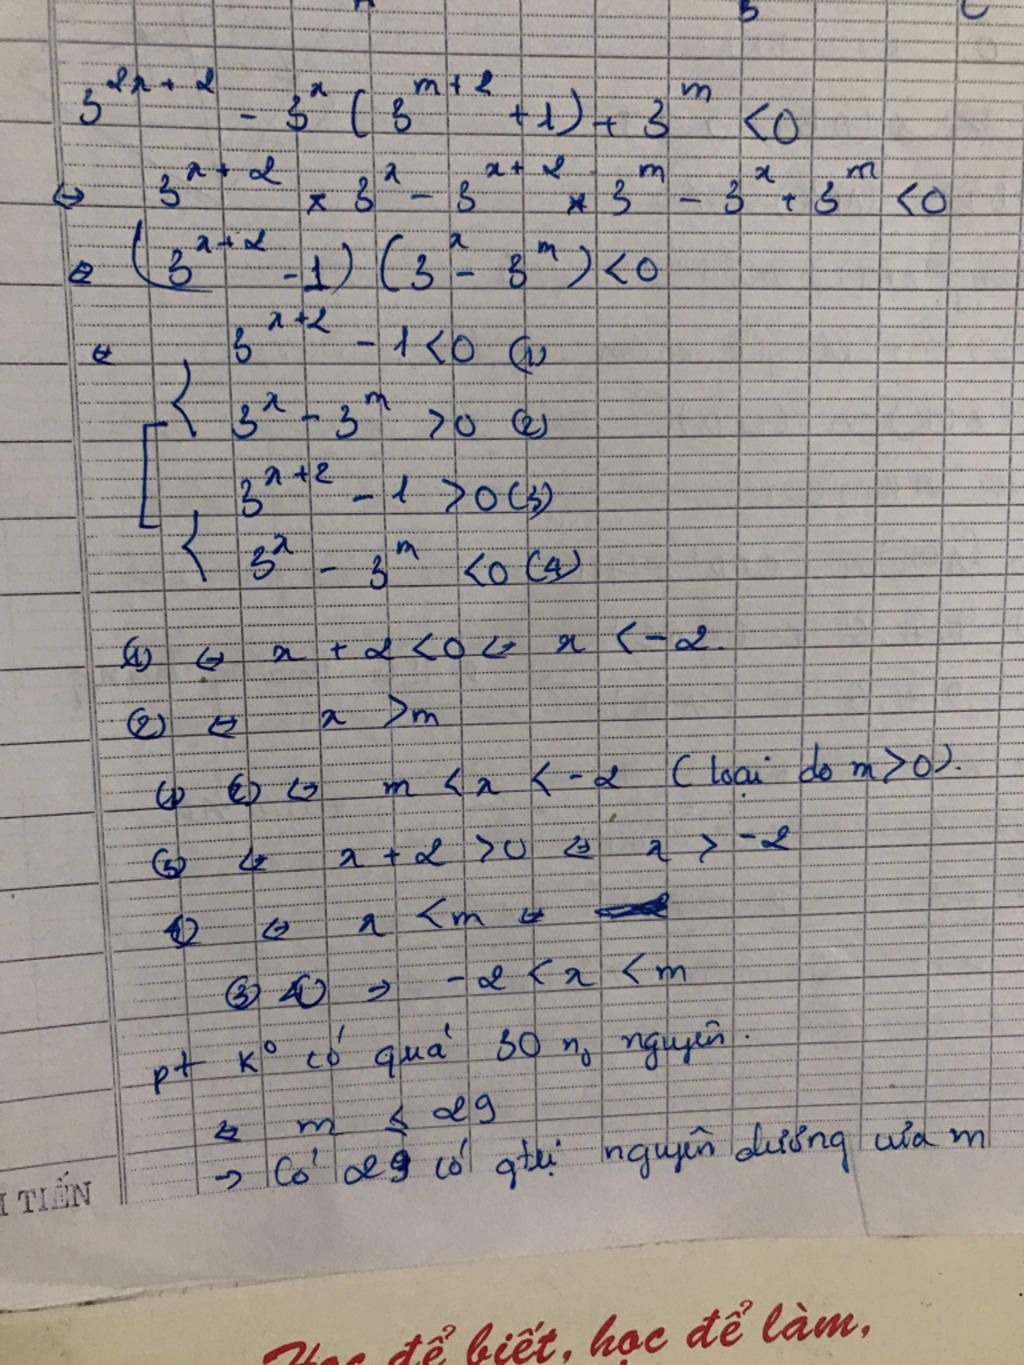 3^{2x+2} - 3^x (3^{m+2} + 1) + 3^m < 0
⇔ 3^{x+2} × 3^x - 3^{x+2} × 3^m - 3^x + 3^m < 0
⇔ (3^{x+2} - 1) (3^x - 3^m) < 0
⇔ 3^{x+2} - 1 < 0 (1)
3^x - 3^m > 0 (2)
3^{x+2} - 1 > 0 (3)
3^x - 3^m < 0 (4)
(1) ⇔ x + 2 < 0 ⇔ x < -2.
(2) ⇔ x > m
(1) (2) ⇔ m < x < -2 (loại do m > 0).
(3) ⇔ x + 2 > 0 ⇔ x > -2
(4) ⇔ x < m ⇔
(3) (4) → -2 < x < m
pt k° có quá 30 n₀ nguyên.
⇔ m ≤ 29
→ Có 29 có gtrị nguyên dương của m
I TIẾN
Học để biết, học để làm,